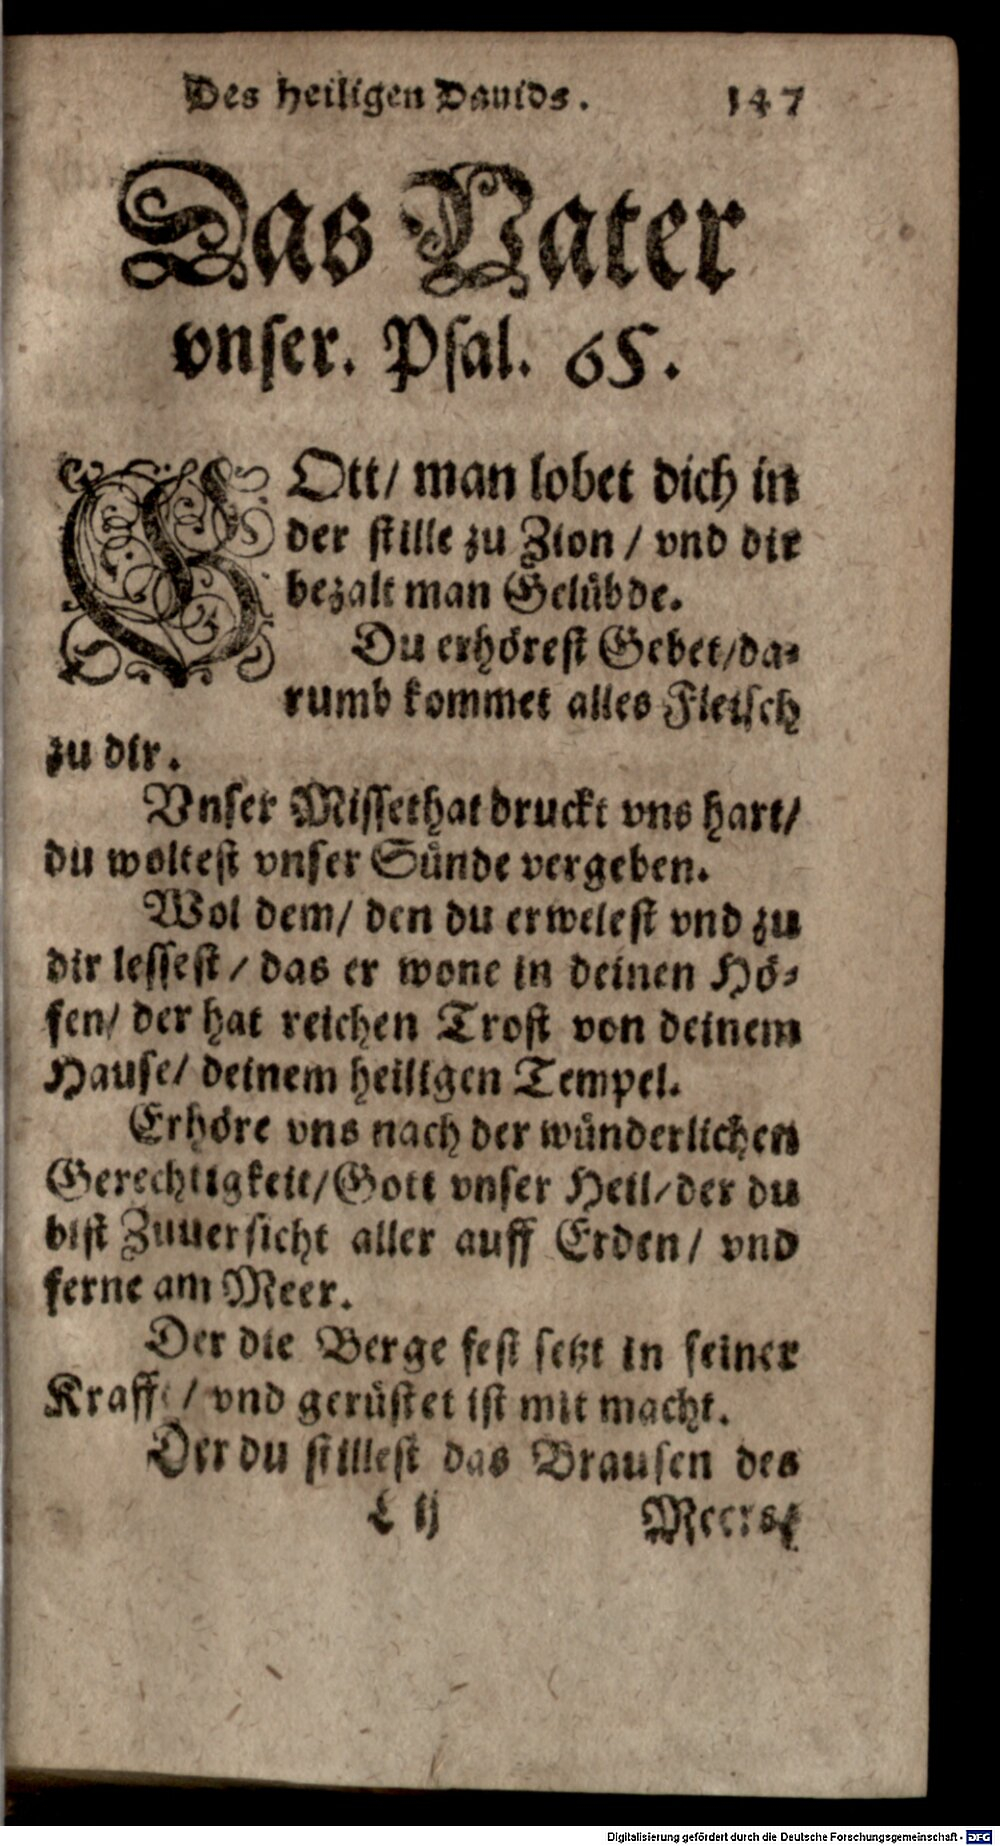 Des heiligen Dauids. 147
Das Vater
vnser. Psal. 65.
GOtt/ man lobet dich in
der stille zu Zion / vnd dir
bezalt man Gelübde.
Du erhörest Gebet/da-
rumb kommet alles Fleisch
zu dir.
Vnser Missethat druckt vns hart/
du woltest vnser Sünde vergeben.
Wol dem/ den du erwelest vnd zu
dir lessest / das er wone in deinen Hö-
fen/ der hat reichen Trost von deinem
Hause/ deinem heiligen Tempel.
Erhöre vns nach der wünderlichen
Gerechtigkeit/Gott vnser Heil/der du
bist Zuuersicht aller auff Erden/ vnd
ferne am Meer.
Der die Berge fest setzt in seiner
Krafft / vnd gerüstet ist mit macht.
Der du stillest das Brausen des
Meers/
Digitalisierung gefördert durch die Deutsche Forschungsgemeinschaft - DFG